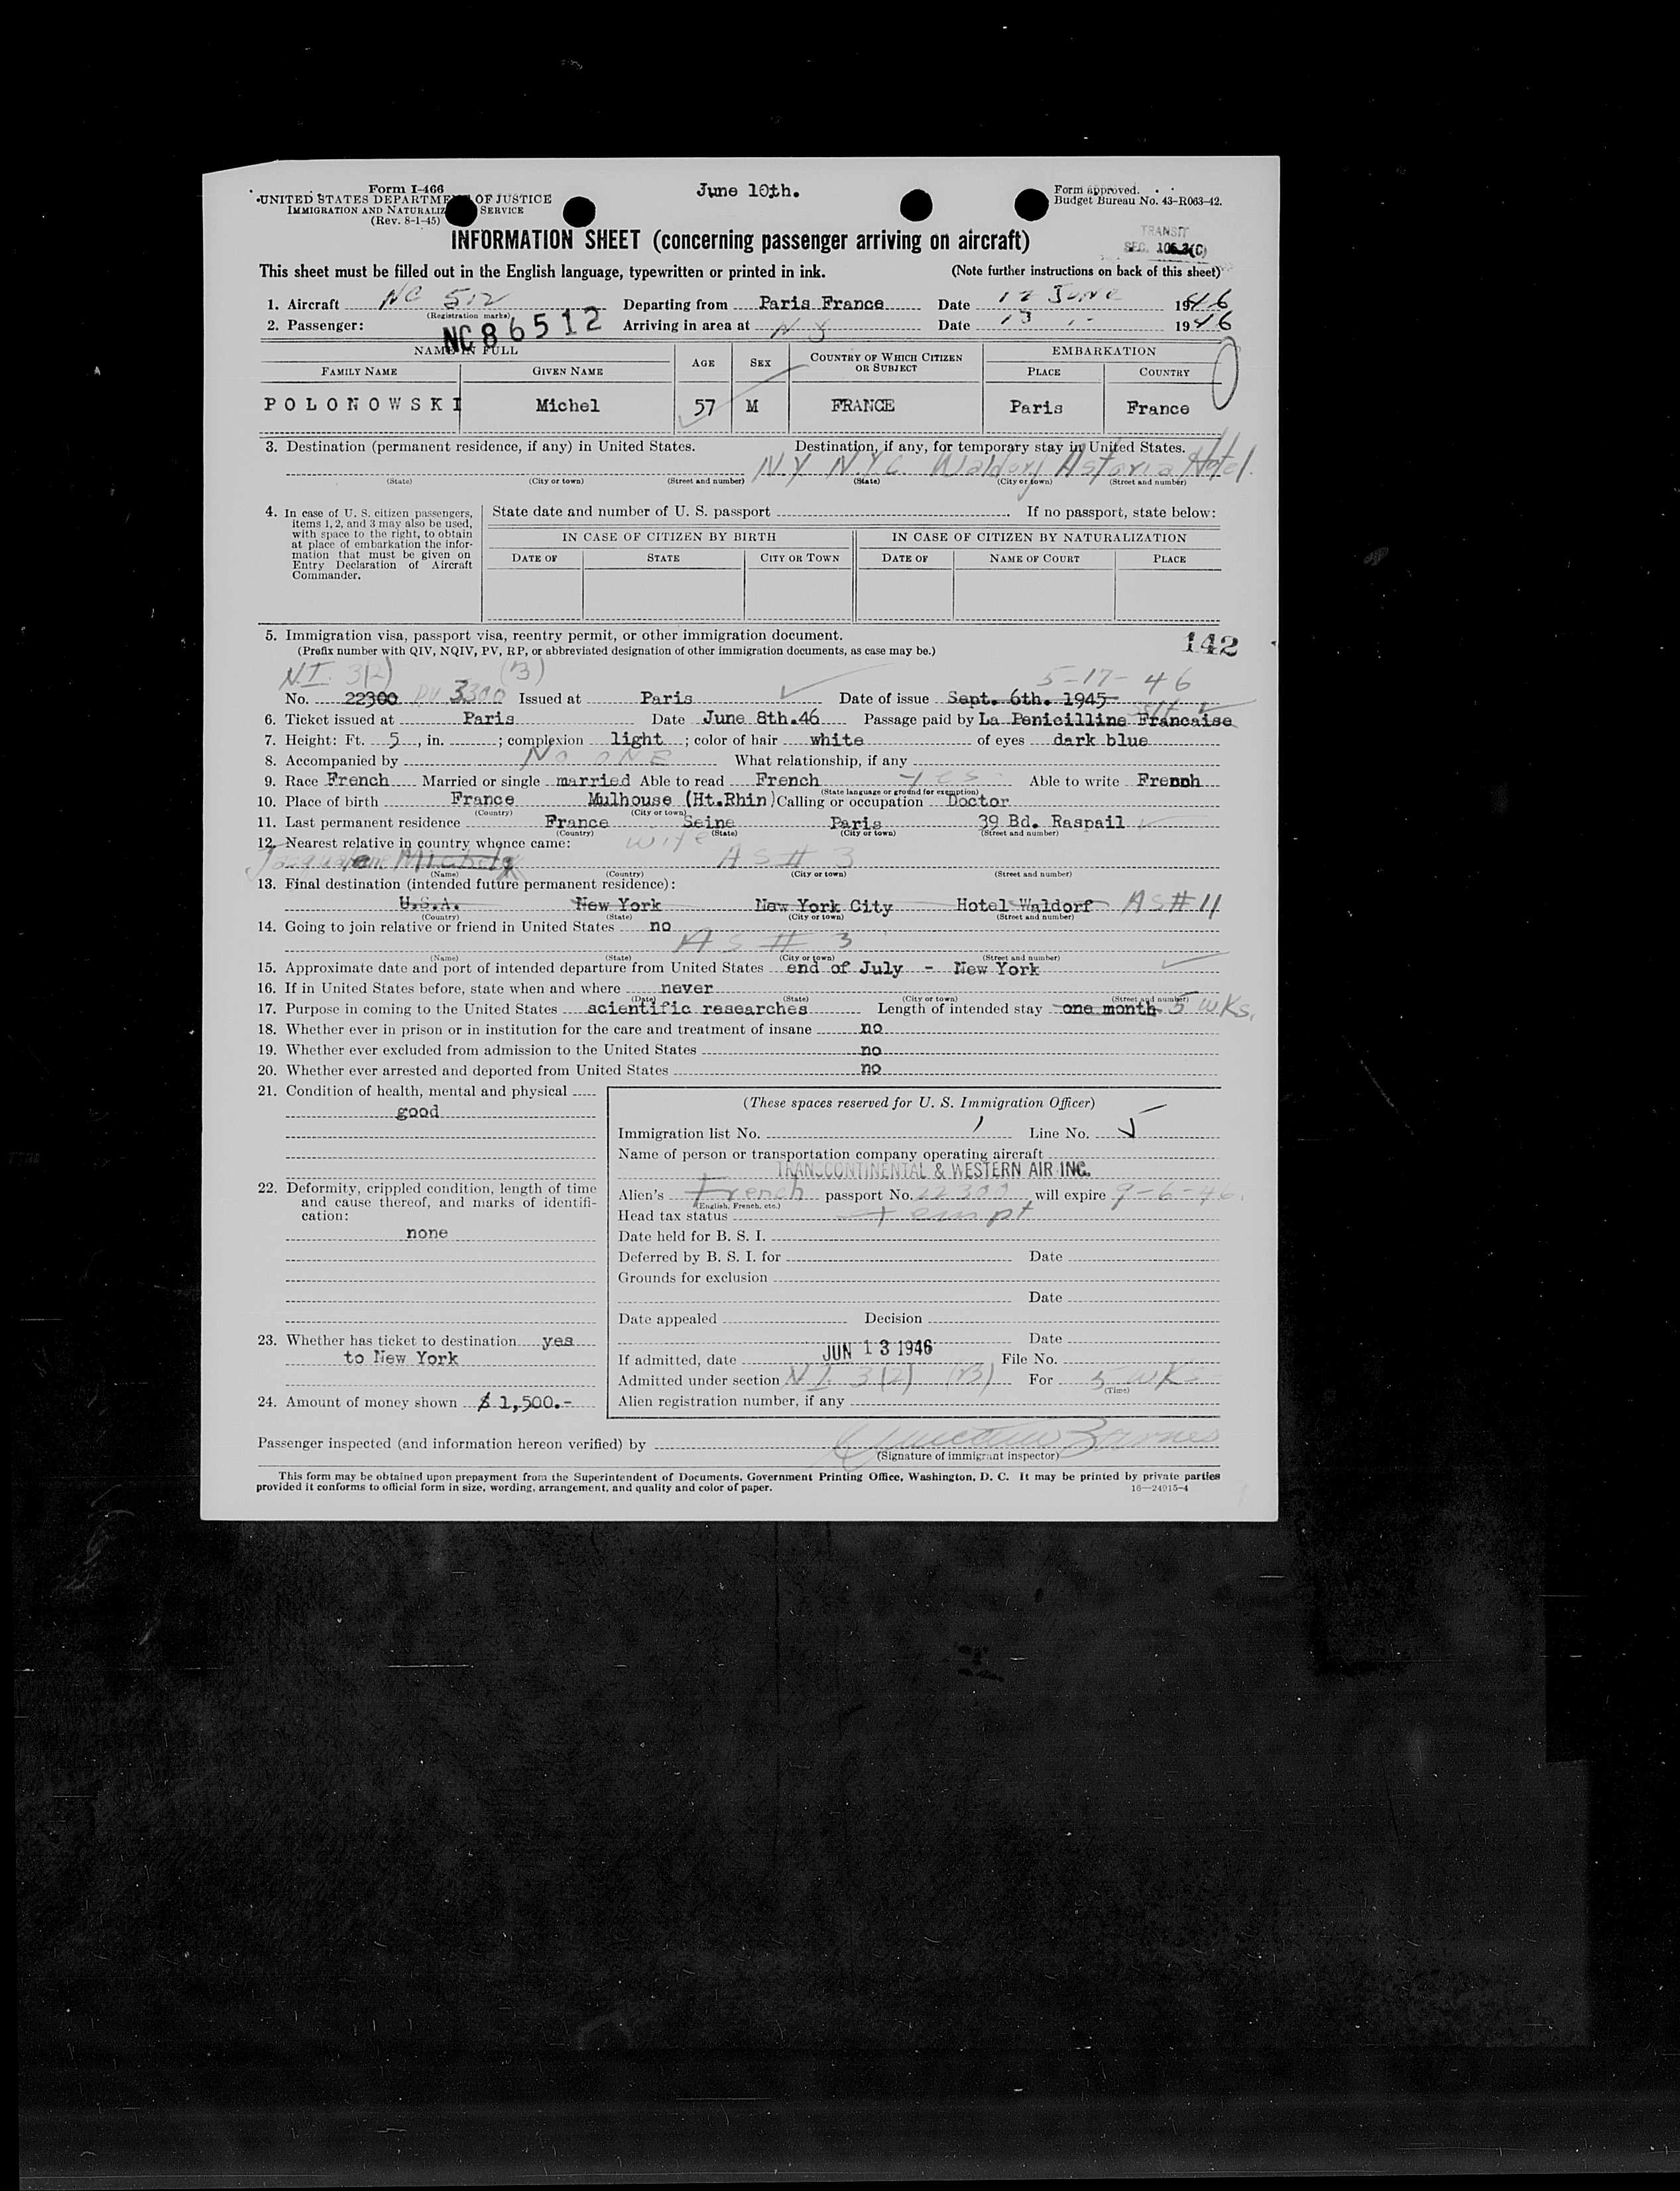 Form I-466
UNITED STATES DEPARTMENT OF JUSTICE
IMMIGRATION AND NATURALIZ SERVICE
(Rev. 8-1-45)
June 10th.
Form approved.
Budget Bureau No. 43-R063-42.
INFORMATION SHEET (concerning passenger arriving on aircraft)
TRANSIT
SEC. 106.3(C)
This sheet must be filled out in the English language, typewritten or printed in ink. (Note further instructions on back of this sheet)
1. Aircraft NC 512 Departing from Paris France Date 12 June 1946
(Registration marks)
2. Passenger: NC86512 Arriving in area at N Y Date 13 1946
NAME IN FULL AGE SEX COUNTRY OF WHICH CITIZEN OR SUBJECT EMBARKATION
FAMILY NAME GIVEN NAME PLACE COUNTRY
POLONOWSKI Michel 57 M FRANCE Paris France
3. Destination (permanent residence, if any) in United States. Destination, if any, for temporary stay in United States.
NY NYC Waldorf Astoria Hotel.
(State) (City or town) (Street and number) (State) (City or town) (Street and number)
4. In case of U. S. citizen passengers, items 1, 2, and 3 may also be used, with space to the right, to obtain at place of embarkation the information that must be given on Entry Declaration of Aircraft Commander.
State date and number of U. S. passport If no passport, state below:
IN CASE OF CITIZEN BY BIRTH IN CASE OF CITIZEN BY NATURALIZATION
DATE OF STATE CITY OR TOWN DATE OF NAME OF COURT PLACE
5. Immigration visa, passport visa, reentry permit, or other immigration document. 142
(Prefix number with QIV, NQIV, PV, RP, or abbreviated designation of other immigration documents, as case may be.)
N.I. 3(2) (B) 5-17-46
No. 22300 PV 3300 Issued at Paris Date of issue Sept. 6th. 1945
6. Ticket issued at Paris Date June 8th.46 Passage paid by La Penicilline Francaise self
7. Height: Ft. 5, in. ; complexion light ; color of hair white of eyes dark blue
8. Accompanied by NO ONE What relationship, if any
9. Race French Married or single married Able to read French yes Able to write French
(State language or ground for exemption)
10. Place of birth France Mulhouse (Ht.Rhin) Calling or occupation Doctor
(Country) (City or town)
11. Last permanent residence France Seine Paris 39 Bd. Raspail
(Country) (State) (City or town) (Street and number)
12. Nearest relative in country whence came: wife
AS # 3
(Name) (Country) (City or town) (Street and number)
13. Final destination (intended future permanent residence):
U.S.A. New York New York City Hotel Waldorf AS # 11
(Country) (State) (City or town) (Street and number)
14. Going to join relative or friend in United States no
AS # 3
(Name) (State) (City or town) (Street and number)
15. Approximate date and port of intended departure from United States end of July - New York
16. If in United States before, state when and where never
(Date) (State) (City or town) (Street and number)
17. Purpose in coming to the United States scientific researches Length of intended stay one month 5 WKs.
18. Whether ever in prison or in institution for the care and treatment of insane no
19. Whether ever excluded from admission to the United States no
20. Whether ever arrested and deported from United States no
21. Condition of health, mental and physical
good
22. Deformity, crippled condition, length of time and cause thereof, and marks of identification:
none
23. Whether has ticket to destination yes
to New York
24. Amount of money shown $ 1,500.-
(These spaces reserved for U. S. Immigration Officer)
Immigration list No. 1 Line No. 5
Name of person or transportation company operating aircraft
TRANSCONTINENTAL & WESTERN AIR INC.
Alien's French passport No. 22300 , will expire 9-6-46.
(English, French, etc.)
Head tax status exempt
Date held for B. S. I.
Deferred by B. S. I. for Date
Grounds for exclusion
Date
Date appealed Decision
Date
If admitted, date JUN 13 1946 File No.
Admitted under section N I 3(2) (B) For 5 WKs
(Time)
Alien registration number, if any
Passenger inspected (and information hereon verified) by
(Signature of immigrant inspector)
This form may be obtained upon prepayment from the Superintendent of Documents, Government Printing Office, Washington, D. C. It may be printed by private parties
provided it conforms to official form in size, wording, arrangement, and quality and color of paper. 16—24915-4